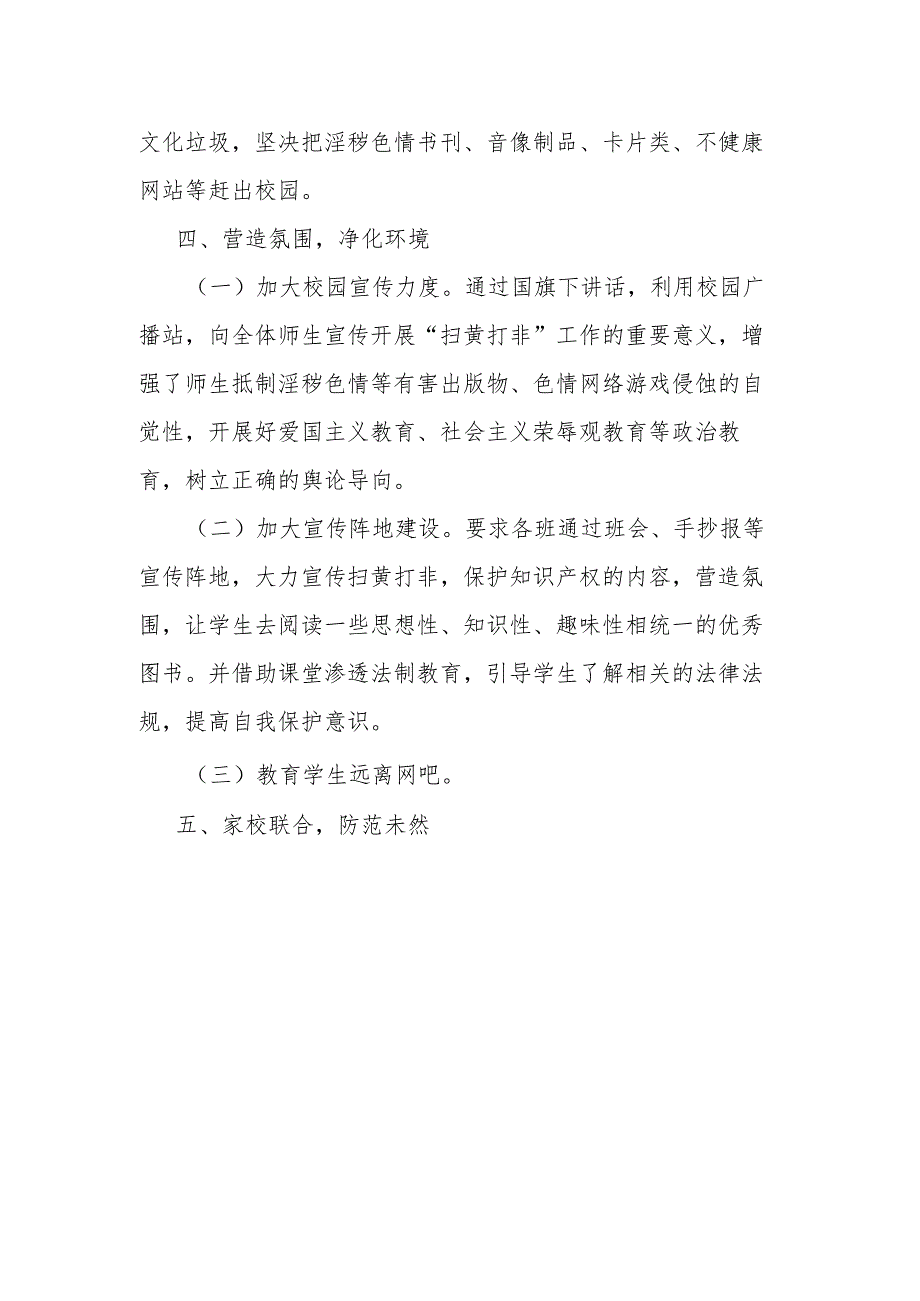 文化垃圾，坚决把淫秽色情书刊、音像制品、卡片类、不健康
网站等赶出校园。
四、营造氛围，净化环境
（一）加大校园宣传力度。通过国旗下讲话，利用校园广
播站，向全体师生宣传开展“扫黄打非”工作的重要意义，增
强了师生抵制淫秽色情等有害出版物、色情网络游戏侵蚀的自
觉性，开展好爱国主义教育、社会主义荣辱观教育等政治教
育，树立正确的舆论导向。
（二）加大宣传阵地建设。要求各班通过班会、手抄报等
宣传阵地，大力宣传扫黄打非，保护知识产权的内容，营造氛
围，让学生去阅读一些思想性、知识性、趣味性相统一的优秀
图书。并借助课堂渗透法制教育，引导学生了解相关的法律法
规，提高自我保护意识。
（三）教育学生远离网吧。
五、家校联合，防范未然